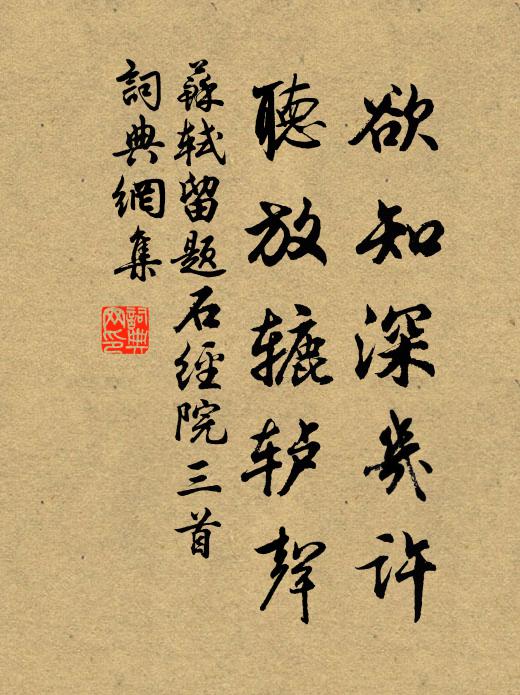 欲知深幾許
聽放辘轳聲
蘇軾留題石經院三首
詞典網集
詞典
网印